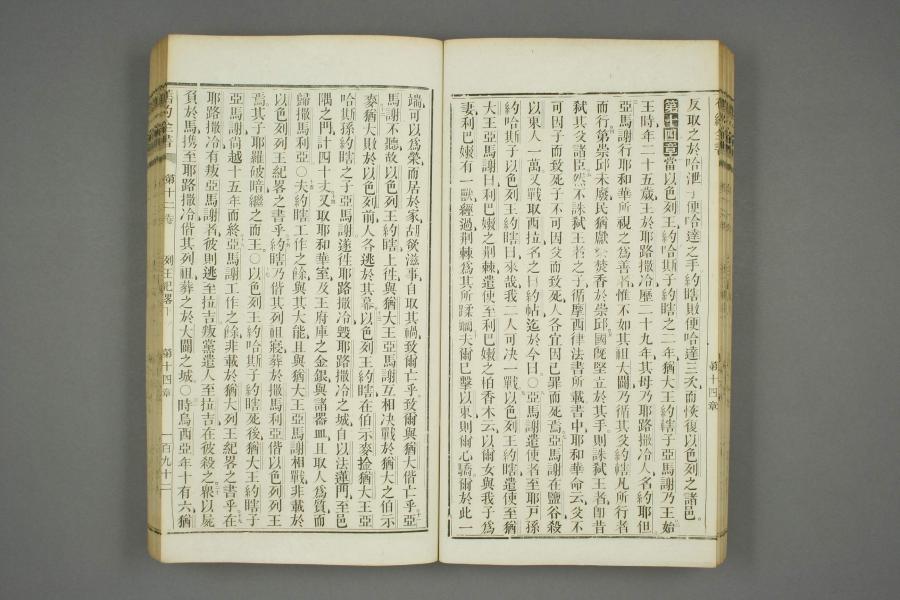 反取之於哈泄一便哈達之手約瞎敗便哈達三次而恢復以色列之諸邑
第十四章當以色列王約哈斯子約瞎之二年猶大王約轄子亞馬謝乃王始
王時年二十五歲王於耶路撒冷歷二十九年其母乃耶路撒冷人名約耶但
亞馬謝行耶和華所視之為善者惟不如其祖大闢乃循其父約轄凡所行者
而行第崇邱未廢民猶獻祭焚香於崇邱國旣堅立於其手則誅弑王者卽昔
弑其父諸臣然不誅弑王者之子循摩西律法書所載書中耶和華命云父不
可因子而致死子不可因父而致死人各宜因己罪而死焉亞馬謝在鹽谷殺
以東人一萬又戰取西拉名之曰約帖迄於今日○亞馬謝遣使者至耶戸孫
約哈斯子以色列王約瞎曰來哉我二人可决一戰以色列王約瞎遣使至猶
大王亞馬謝曰利巴嫩之荆棘遣使至利巴嫩之柏香木云以爾女與我子為
妻利巴嫩有一獸經過荆棘為其所蹂躪夫爾已擊以東則爾心驕爾於此一
第十四章
端可以為榮而居於家胡欲滋事自取其禍致爾亡乎致爾與猶大偕亡乎亞
馬謝不聽故以色列王約瞎上徃與猶大王亞馬謝互相决戰於猶大之伯示
麥猶大敗於以色列前人各逃於其幕以色列王約瞎在伯示麥擒猶大王亞
哈斯孫約瞎之子亞馬謝遂徃耶路撒冷毁耶路撒冷之城自以法蓮門至邑
隅之門計四十丈又取耶和華室及王府庫之金銀與諸器皿且取人為質而
歸撒馬利亞○夫約瞎工作之餘與其大能且與猶大王亞馬謝相戰非載於
以色列列王紀畧之書乎約瞎乃偕其列祖寢葬於撒馬利亞偕以色列列王
焉其子耶羅破暗繼之而王○以色列王約哈斯子約瞎死後猶大王約瞎子
亞馬謝尙越十五年而終亞馬謝工作之餘非載於猶大列王紀畧之書乎在
耶路撒冷有叛亞馬謝者彼則逃至拉吉叛黨遣人至拉吉在彼殺之衆以屍
負於馬携至耶路撒冷偕其列祖葬之於大闢之城○時烏西亞年十有六猶
舊約全書 第十二卷 列王紀畧下 第十四章 一百九十二